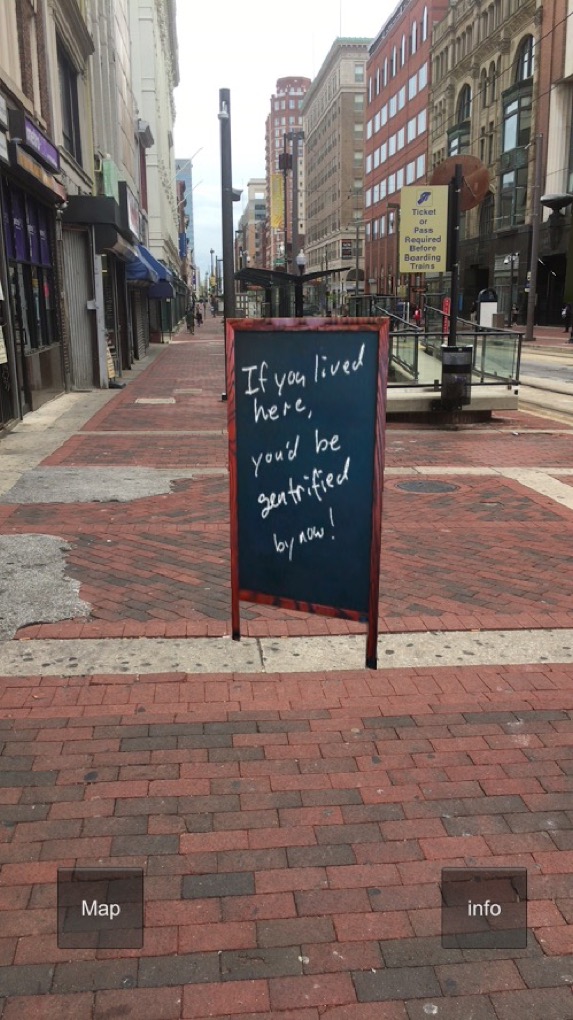 Ticket
or
Pass
Required
Before
Boarding
Trains
If you lived
here,
you'd be
gentrified
by now!
Map
info